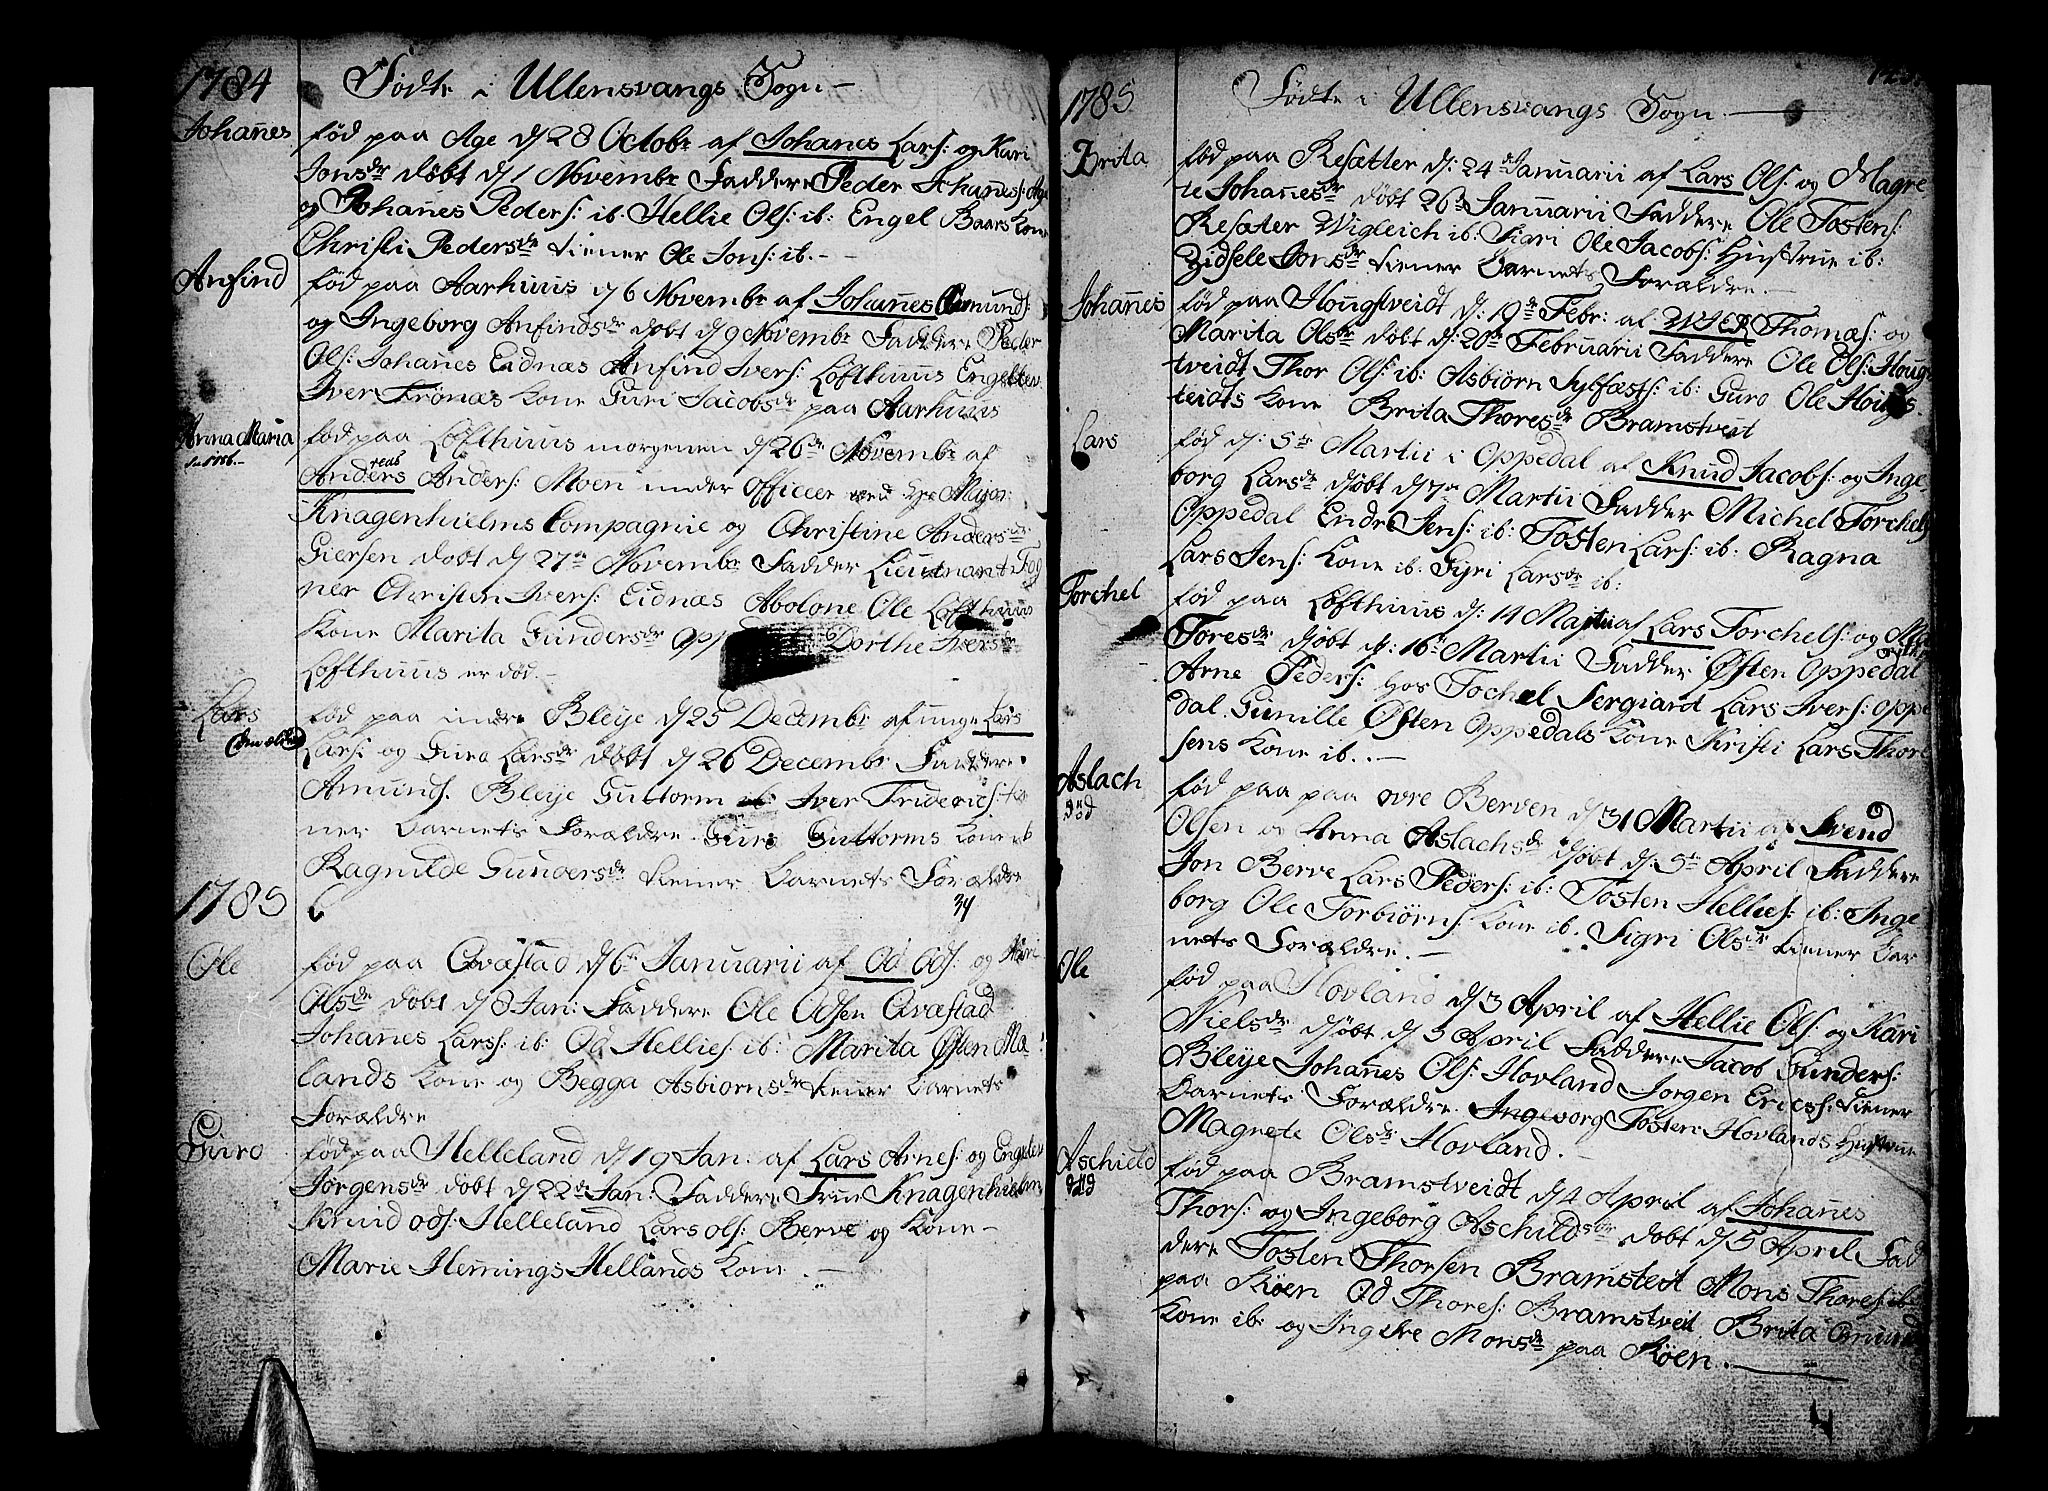 1784 Födte i Ullensvangs Sogn
Johañes föd paa Age d 28 Octobr af Johanes Lars: og Kari
Jonsdr döbt d 1 Novembr Faddere Peder Johanes:
og Johañes Peders: ib: Hellie Ols: ib: Engel Baars Kone
Christi Pedersdr tiener Ole Jons: ib.
Anfind föd paa Aarhuus d 6 Novembr af Johañes Omunds:
og Ingeborg Anfindsdr döbt d 9 Novembr Faddere Peder
Ols: Johañes Eidnæs Anfind Ivers: Lofthuus
Iver Frönæs Kone Guri Jacobsdr paa Aarhuus
Anna Maria föd paa Lofthuus morgenen d 26de Novembr af
Anders Anders: Moen under officeer ved Hr Major
Knagenhielms Compagnie og Christine Andersdr
Giersen döbt d 27de Novembr Fadder Lieutnant Fog
ner Christen Ivers: Eidnæs Abolone Ole Lofthuus
Kone Marita Gundersdr Dorthe Iversdr
Lofthuus er död.
Lars föd paa indre Bleye d 25 Decembr af unge Lars
Lars: og Guro Larsdr döbt d 26 Decembr Faddere
Amund Bleye Guttorm ib: Iver Friderichs: tie
ner Barnets Forældre. Guro Guttorms Kone ib
Ragnilde Gundersdr tiener Barnets Forældre
1785 34
Ole föd paa Qvæstad d 6te Januarii af Od Ods. og Kari
Olsdr döbt d 8 Jan: Faddere Ole Odsen Qvæstad
Johañes Lars: ib: Od Hellies: ib: Marita Östen
lands Kone og Begga Asbiörnsdr tiener Barnets
Forældre
Guro föd paa Helleland d 19 Jan. af Lars Arnes: og Engelev
Jörgensdr döbt d 22de Jan: Faddere Frue Knagenhielm
Knud Ods: Helleland Lars Ols: Berve og Kone
Marie Hemings Hellands Kone
1785 Födte i Ullensvangs Sogn
Brita föd paa Resætter d: 24de Januarii af Lars Ols: og Magre
te Johañesdr döbt 26de Januarii Faddere Ole Tostens:
Resæter Wigleich ib: Sigri Ole Jacobs: Hustrue ib:
Zidsele Jonsdr tiener Barnets Forældre.
Johañes föd paa Hougstveidt d: 19de Febr: af Thomæs: og
Marita Olsdr döbt d: 20de Februarii Faddere Ole Ols: Houg
tveidt Thor Ols: ib: Asbiörn Sylfæsts: ib: Guro Ole Hougs
tveidts Kone Brita Thoresdr Bramstveit
Lars föd d: 5te Martii i Oppedal af Knud Jacobs: og Inge
borg Larsdr döbt d 7de Martii Fadder Michel Torchels
Oppedal Endre Jens: ib: Tosten Lars: ib: Ragna
Lars Jens: Kone ib. Syri Larsdr ib:
Torchel föd paa Lofthuus d: 14 Martii af Lars Torchels: og
Toresdr döbt d: 16de Martii Fadder Östen Oppedal
Arne Peders: hos Tochel Sergiant Lars Ivers: Oppe
dal. Gunille Östen Oppedals Kone Kristi Lars Thor
sens Kone ib.
Aslach
död föd paa paa övre Berven d 31 Martii af Svend
Olsen og Anna Aslachsdr döbt d: 5te April Faddere
Jon Berve Lars Peders: ib: Tosten Hellies: ib: Inge
borg Ole Torbiörns: Kone ib. Sigri Olsdr tiener Bar
nets Forældre.
Ole föd paa Hovland d 3 April af Hellie Ols: og Kari
Nielsdr döbt d 5 April Faddere Jacob Gunders:
Bleye Johañes Ols: Hovland Jörgen Erics: tiener
Barnets Forældre. Ingeborg Tosten Hovlands Hustrue
Magrete Olsdr Hovland.
Aschield
död föd paa Bramstveidt d 4 April af Johañes
Thors: og Ingeborg Aschildsdr döbt d 5 April Fad
dere Tosten Thorsen Bramstveit Mons Thores: ib
paa Röen Od Thores: Bramstveit Brita
Kone ib: og Ingebre Monsdr paa Röen.